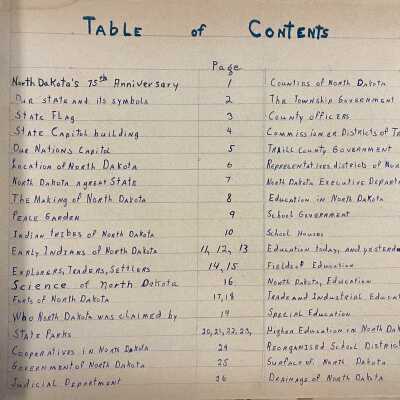 Table of Contents
Page
North Dakota's 75th Anniversary 1
Our state and its symbols 2
State Flag 3
State Capitol building 4
Our Nations Capitol 5
Location of North Dakota 6
North Dakota a great State 7
The Making of North Dakota 8
Peace Garden 9
Indian tribes of North Dakota 10
Early Indians of North Dakota 11, 12, 13
Explorers, Traders, Settlers 14, 15
Science of North Dakota 16
Facts of North Dakota 17, 18
Who North Dakota was claimed by 19
State Parks 20, 21, 22, 23,
Cooperatives in North Dakota 24
Government of North Dakota 25
Judicial Department 26
Counties of North Dakota
The Township Government
County officers
Commissioner Districts of
Traill County Government
Representatives districts of
North Dakota Executive
Education in North Dakota
School Government
School Houses
Education today, and
Fields of Education
North Dakota, Education
Trade and Industrial
Special Education
Higher Education in North
Reorganised School
Surface of North Dakota
Drainage of North Dakota